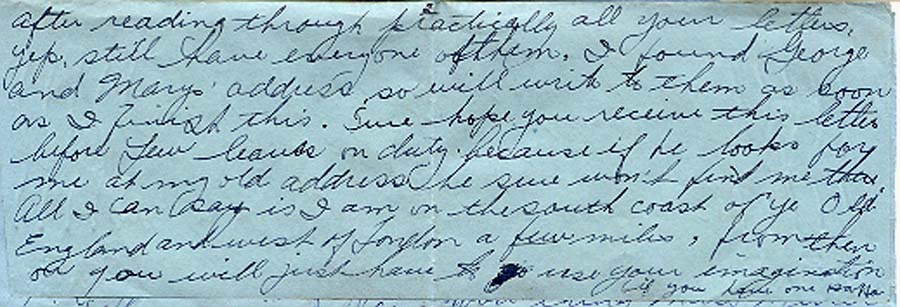 after reading through practically all your letters,
yep, still have everyone of them. I found George
and Marys' address, so will write to them as soon
as I finish this. Sure hope you receive this letter
before Lew leaves on duty because if he looks for
me at my old address he sure won't find me there.
All I can say is I am on the south coast of Ye Old
England and west of London a few miles, from then
on you will just have to use your imagination
(if you have one haha